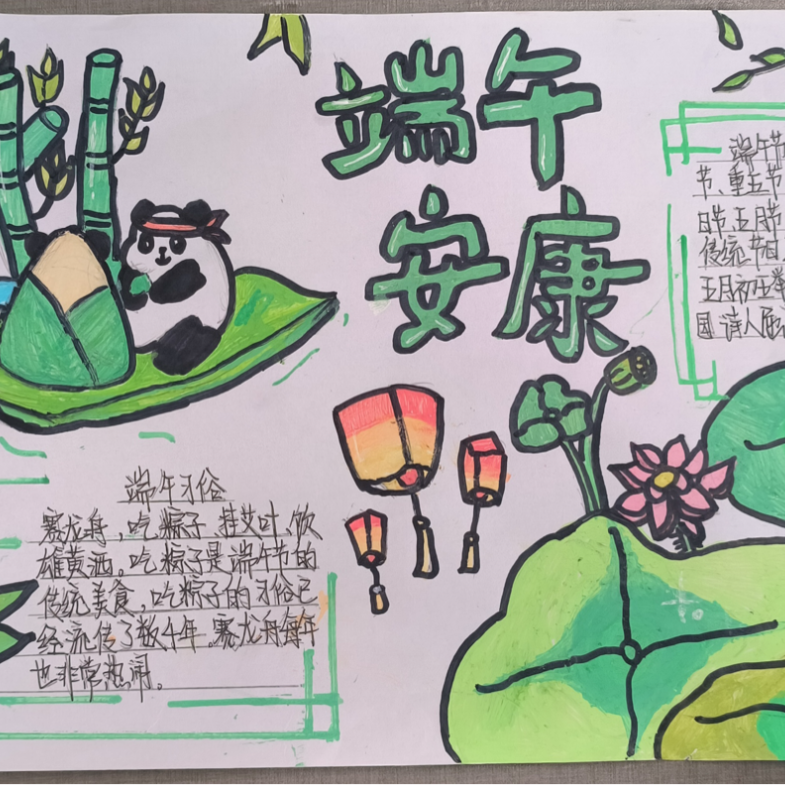 端午
安康
端午节
节、重五节
日节、五月节
传统节日
五月初五
国诗人屈
端午习俗
赛龙舟，吃粽子、挂艾叶、饮
雄黄酒。吃粽子是端午节的
传统美食，吃粽子的习俗已
经流传了数千年。赛龙舟每年
也非常热闹。